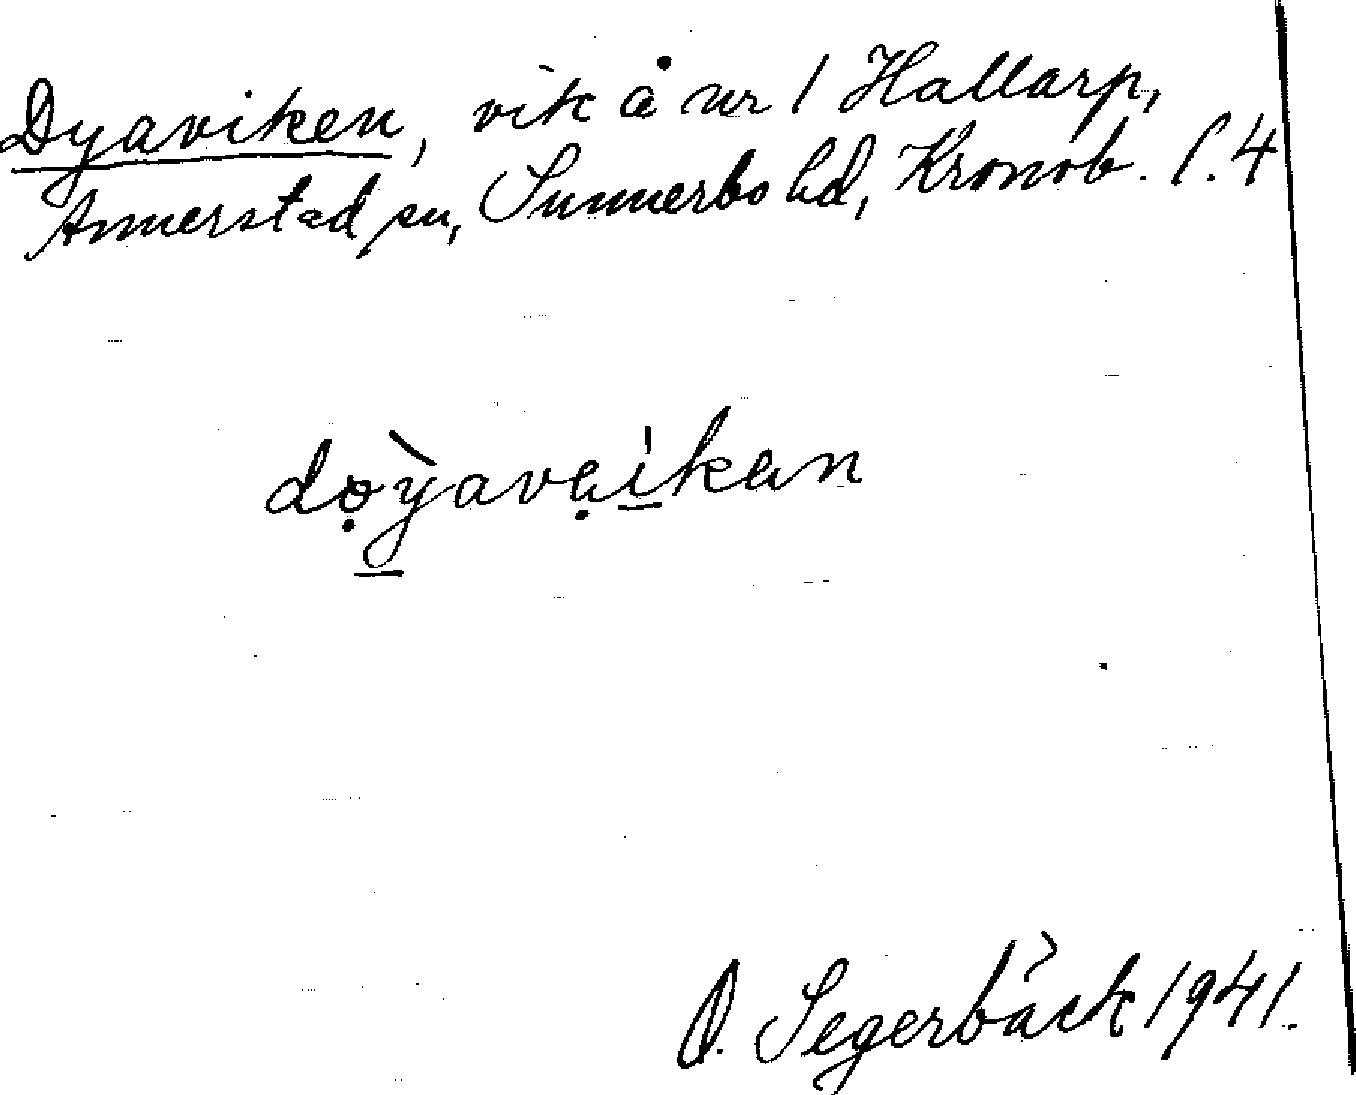 Dyaviken, vik å nr 1 Hallarp,
Annerstad sn, Sunnerbo hd, Kronob. l. 4
dọỳavạikan
D. Segerbäck 1941.